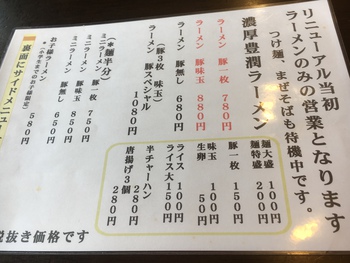 リニューアル当初
ラーメンのみの営業となります
つけ麺、まぜそばも待機中です。
濃厚豊潤ラーメン
ラーメン 豚一枚 780円
ラーメン 豚味玉 880円
ラーメン 豚無し 680円
ラーメン 豚スペシャル
(豚3枚 味玉) 1080円
(*麺半分)
ミニラーメン 豚一枚 750円
ミニラーメン 豚味玉 850円
ミニラーメン 豚無し 650円
お子様ラーメン 580円
*小学生までのお子様限定
裏面にサイドメニュー
麺大盛 100円
麺特盛 200円
豚一枚 150円
味玉 100円
生卵 50円
ライス 100円
ライス大 150円
半チャーハン 280円
唐揚げ3個 280円
税抜き価格です